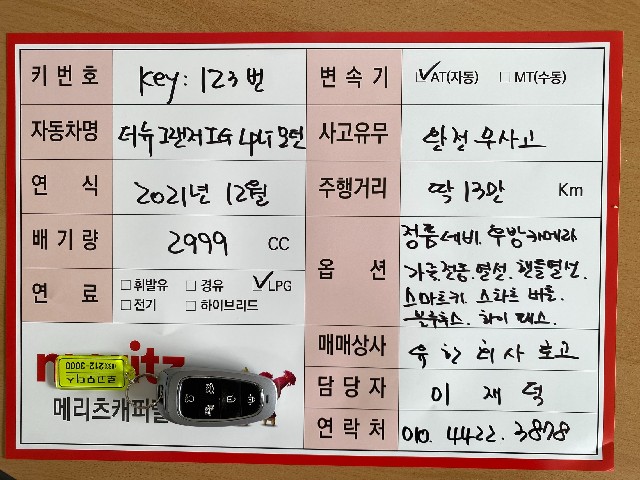 키 번 호 key: 123번
변 속 기 ☑AT(자동) □MT(수동)
자동차명 더뉴그랜저IG LPLi 모던
사고유무 완전 무사고
연 식 2021년 12월
주행거리 딱 13만 Km
배 기 량 2999 CC
옵 션 정품네비. 후방카메라
가죽전동.열선. 핸들열선.
스마트키. 스타트 버튼.
블루투스. 하이패스.
연 료 □휘발유 □경유 ☑LPG
□전기 □하이브리드
매매상사 유한회사 호고
담 당 자 이 재 덕
연 락 처 010. 4422. 3878
메리츠캐피탈
212-3000